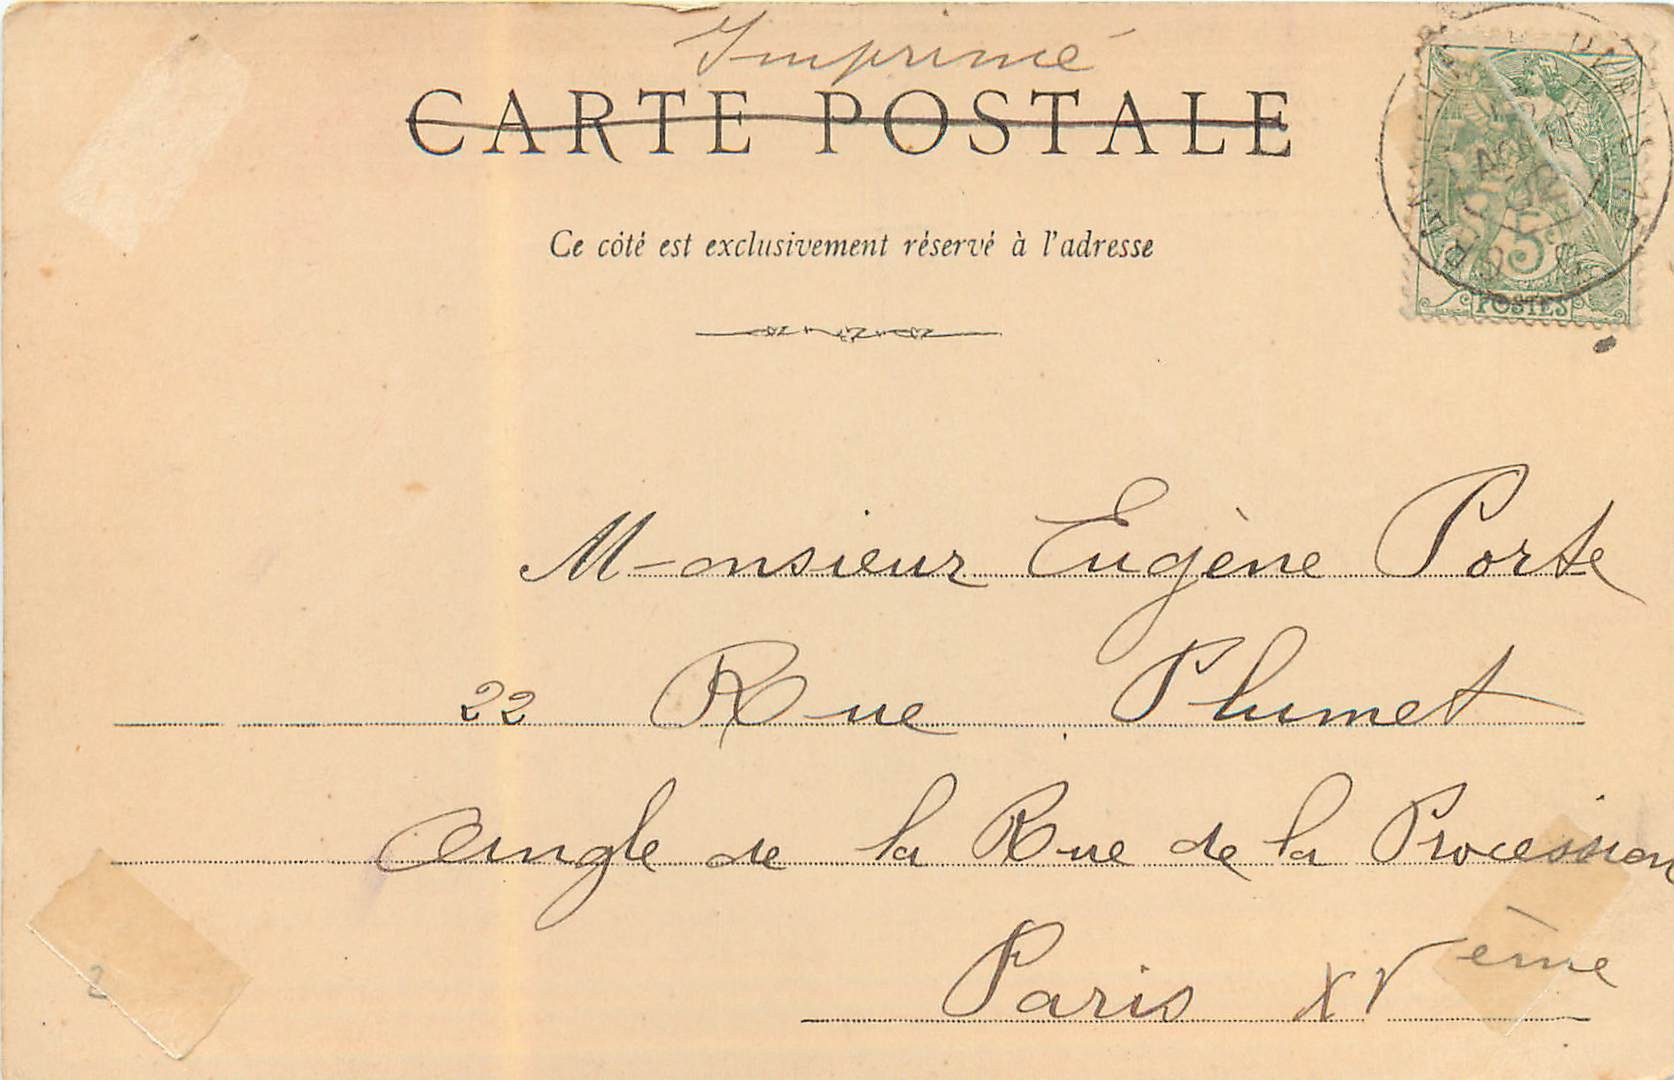 Imprimé
CARTE POSTALE
Ce côté est exclusivement réservé à l'adresse
5
POSTES
Monsieur Eugène Porte
22 Rue Plumet
Angle de la Rue de la Procession
Paris XVème
2